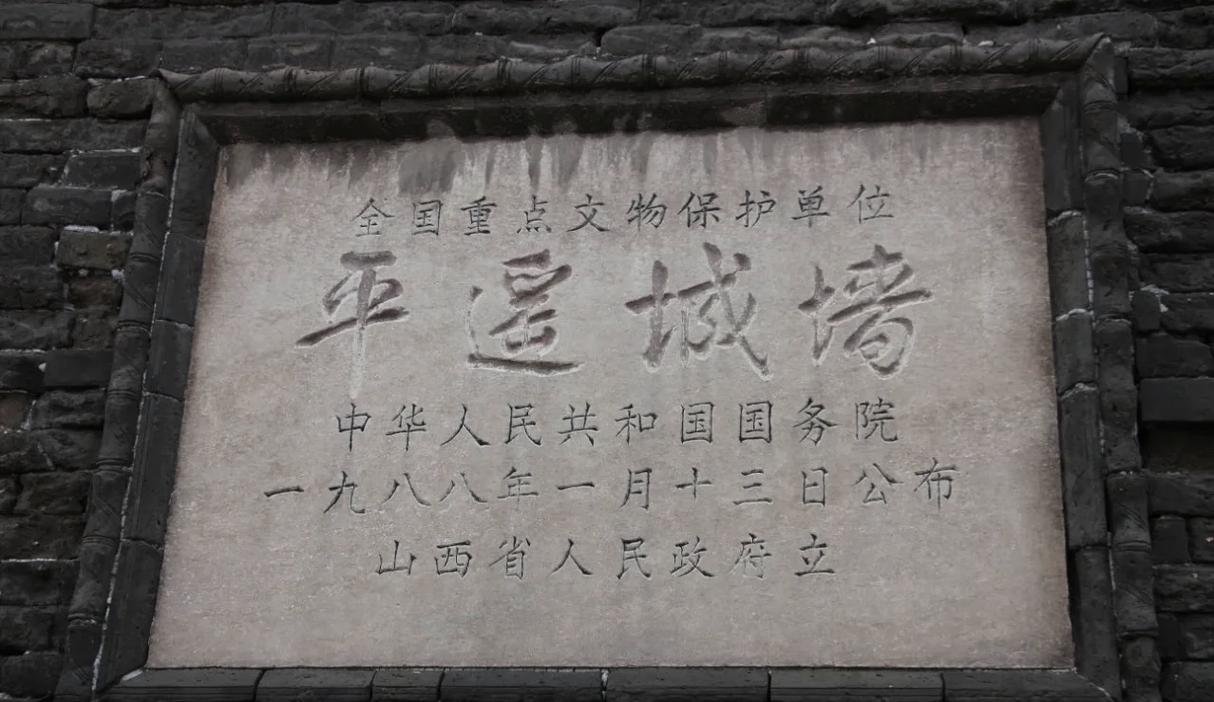 全国重点文物保护单位
平遥城墙
中华人民共和国国务院
一九八八年一月十三日公布
山西省人民政府立